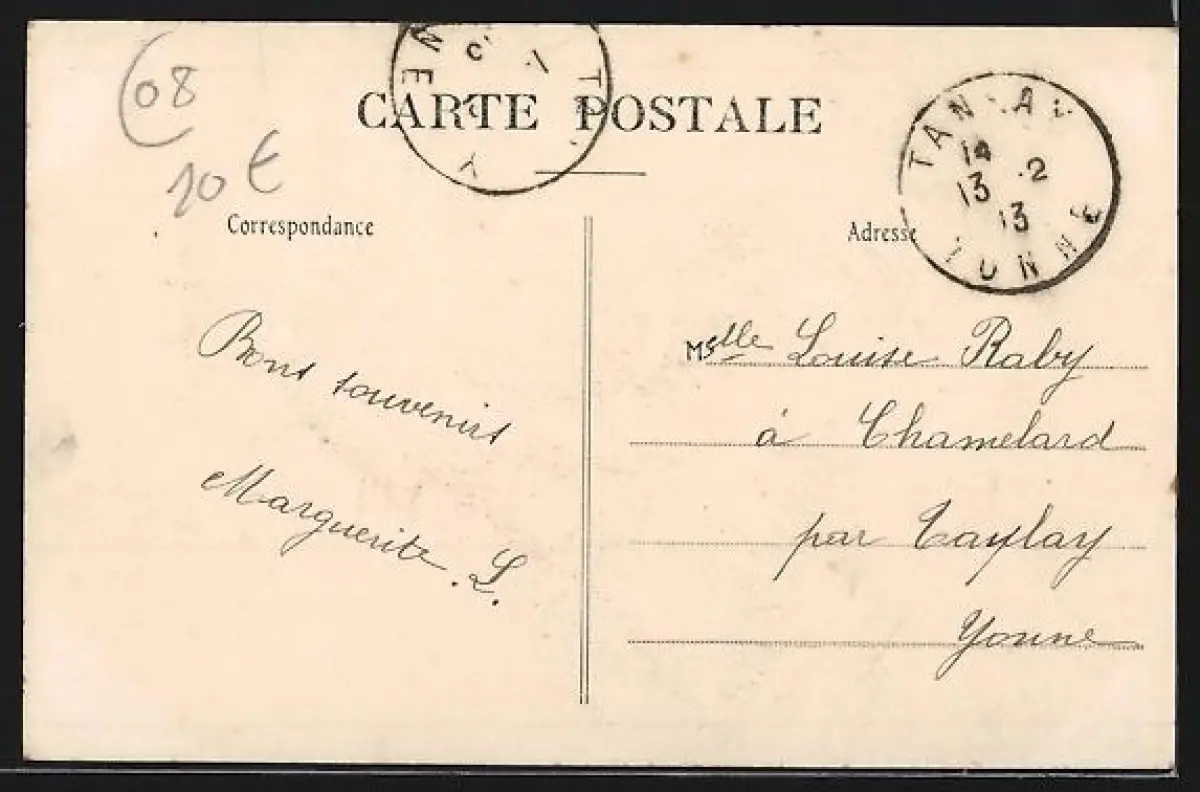 08
10 €
CARTE POSTALE
TANLAY
14 2
13
13
YONNE
Correspondance
Adresse
Bons souvenirs
Marguerite. L.
Mselle Louise Raby
à Chamelard
par Taylay
Yonne